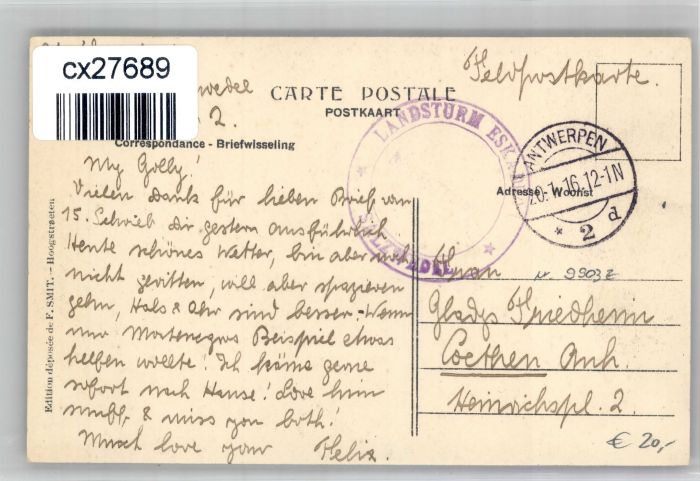 cx27689
wedel
2.
Feldpostkarte.
CARTE POSTALE
POSTKAART
Correspondance - Briefwisseling
Adresse - Woonst
LANDSTURM ESK
ANTWERPEN
20.1.16.12-1N
* 2 d
My Golly!
Vielen Dank für lieben Brief vom
15. Schrieb Dir gestern ausführlich
Heute schönes Wetter, bin aber noch
nicht geritten, will aber spazieren
gehn, Hals & Ohr sind besser. Wenn
nur Montenegros Beispiel etwas
helfen wollte! Ich käme gerne
sofort nach Hause! Love him
& miss you both!
Much love your Felix.
Edition déposée de F. SMIT. — Hoogstraeten
Frau
Nr. 9903z
Gladys Friedheim
Coethen Anh.
Heinrichspl. 2.
€ 20,-